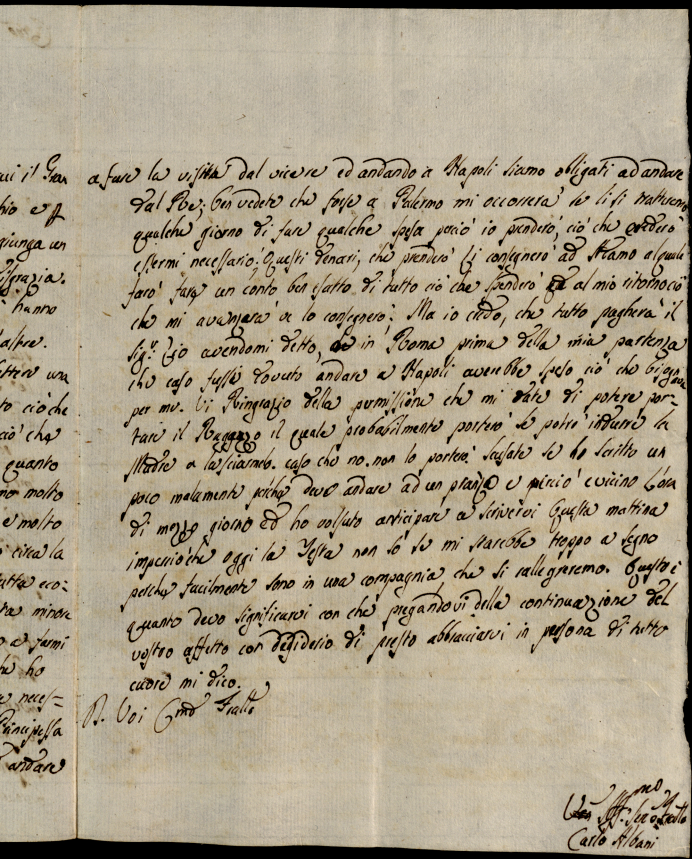 aci il Gran
hio e p
giunga un
disgrazia.
hanno
altre.
ettere una
to ciò che
ciò che
quanto
mo molto
e molto
circa la
tutta eco=
ta minore
o a farmi
he ho
e neces=
Principessa
andare
a fare la visita dal vicere ed andando a Napoli siamo obligati ad andare
dal Re; ben vedete che forse a Palermo mi occorrerà se li si trattenemo
qualche giorno di fare qualche spesa perciò io prenderò, ciò che crederò
essermi necessario. Questi denari, che prenderò li consegnerò ad Adamo al quale
farò fare un conto ben esatto di tutto ciò che spenderò ed al mio ritorno ciò
che mi avanzarà ve lo consegnerò. Ma io credo, che tutto pagherà il
Sigr. Zio avendomi detto, in Roma prima della mia partenza
che caso fussi dovuto andare a Napoli averebbe speso ciò che bisogna
per me. Vi Ringrazio della permissione che mi date di potere por=
tare il Ragazzo il quale probabilmente porterò se potrò indurre la
Madre a lasciarmelo. caso che no. non lo porterò. Scusate se ho scritto un
poco malamente perche devo andare ad un pranzo e perciò è vicino l'ora
di mezzo giorno ed ho volsuto anticipare a scrivervi Questa mattina
imperciòche oggi la Testa non so se mi starebbe troppo a segno
perche facilmente sono in una compagnia che si rallegraremo. Questo è
quanto devo significarvi con che pregandovi della continuazione del
vostro affetto con desiderio di presto abbracciarvi in persona di tutto
cuore mi dico.
D. Voi Cmo Fratello
Affmo Fratello
Carlo Albani